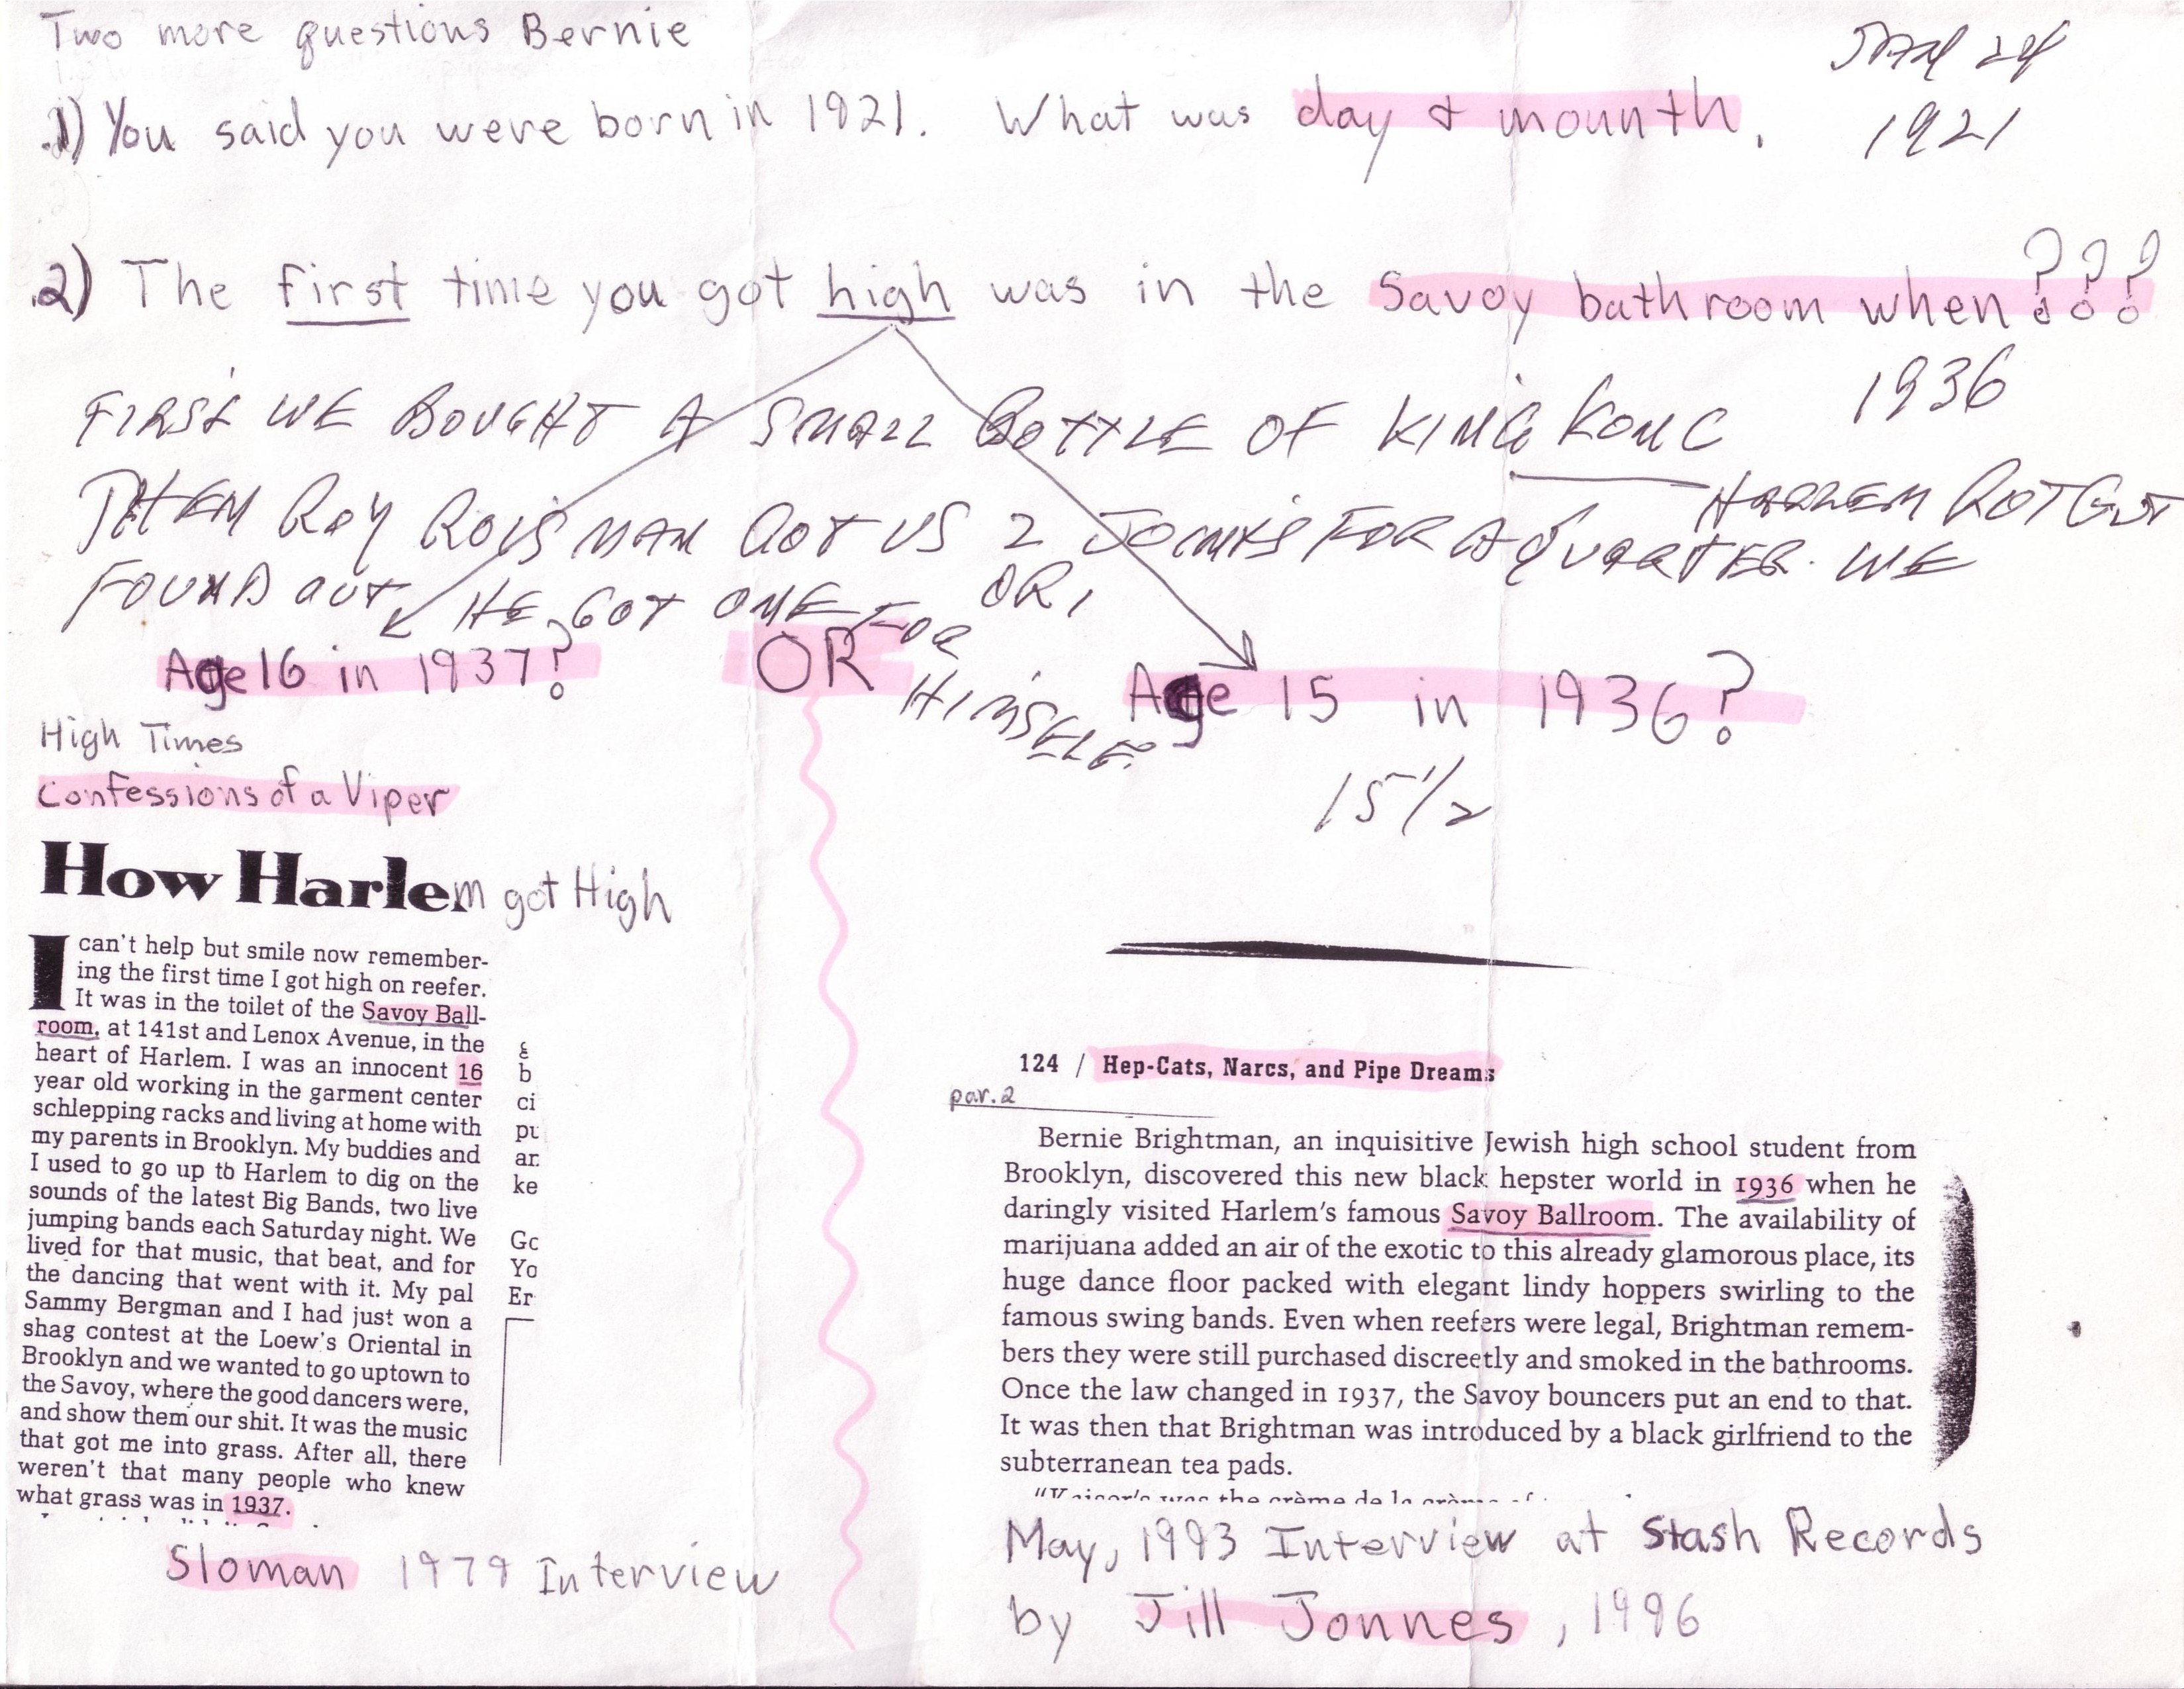 Two more questions Bernie
1) You said you were born in 1921. What was day & mounth.
JAN 24
1921
2) The first time you got high was in the Savoy bathroom when???
1936
FIRST WE BOUGHT A SMALL BOTTLE OF KING KONG
HARLEM ROT GUT
THEN ROY ROISMAN GOT US 2 JOINTS FOR A QUARTER. WE
FOUND OUT HE GOT ONE FOR
HIMSELF.
OR,
Age 16 in 1937?
OR
Age 15 in 1936?
15 1/2
High Times
Confessions of a Viper
How Harlem got High
I can't help but smile now remember-
ing the first time I got high on reefer.
It was in the toilet of the Savoy Ball-
room, at 141st and Lenox Avenue, in the
heart of Harlem. I was an innocent 16
year old working in the garment center
schlepping racks and living at home with
my parents in Brooklyn. My buddies and
I used to go up to Harlem to dig on the
sounds of the latest Big Bands, two live
jumping bands each Saturday night. We
lived for that music, that beat, and for
the dancing that went with it. My pal
Sammy Bergman and I had just won a
shag contest at the Loew's Oriental in
Brooklyn and we wanted to go uptown to
the Savoy, where the good dancers were,
and show them our shit. It was the music
that got me into grass. After all, there
weren't that many people who knew
what grass was in 1937.
b
ci
pu
an
ke
Go
Yo
Er
Sloman 1979 Interview
124 / Hep-Cats, Narcs, and Pipe Dreams
par. 2
Bernie Brightman, an inquisitive Jewish high school student from
Brooklyn, discovered this new black hepster world in 1936 when he
daringly visited Harlem's famous Savoy Ballroom. The availability of
marijuana added an air of the exotic to this already glamorous place, its
huge dance floor packed with elegant lindy hoppers swirling to the
famous swing bands. Even when reefers were legal, Brightman remem-
bers they were still purchased discreetly and smoked in the bathrooms.
Once the law changed in 1937, the Savoy bouncers put an end to that.
It was then that Brightman was introduced by a black girlfriend to the
subterranean tea pads.
"Kaiser's was the crème de la crème of
May, 1993 Interview at Stash Records
by Jill Jonnes, 1996